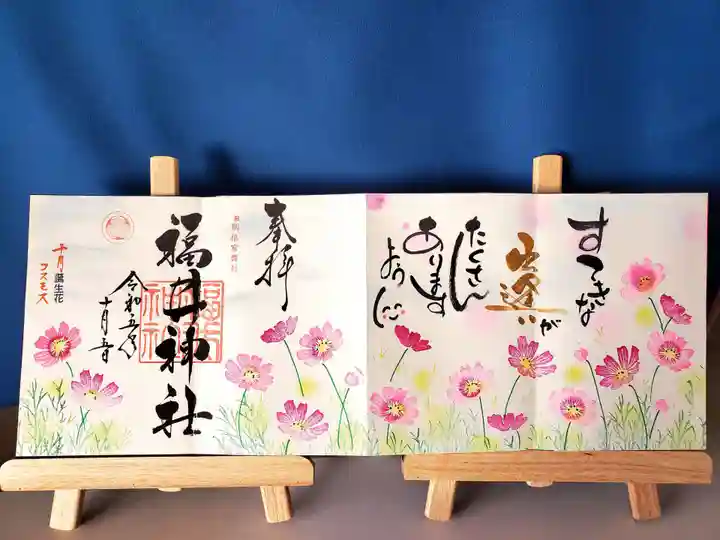 すてきな
出逢いが
たくさん
あります
ように
奉拝
福井神社
令和五年
十月吉日
十月
誕生花
コスモス